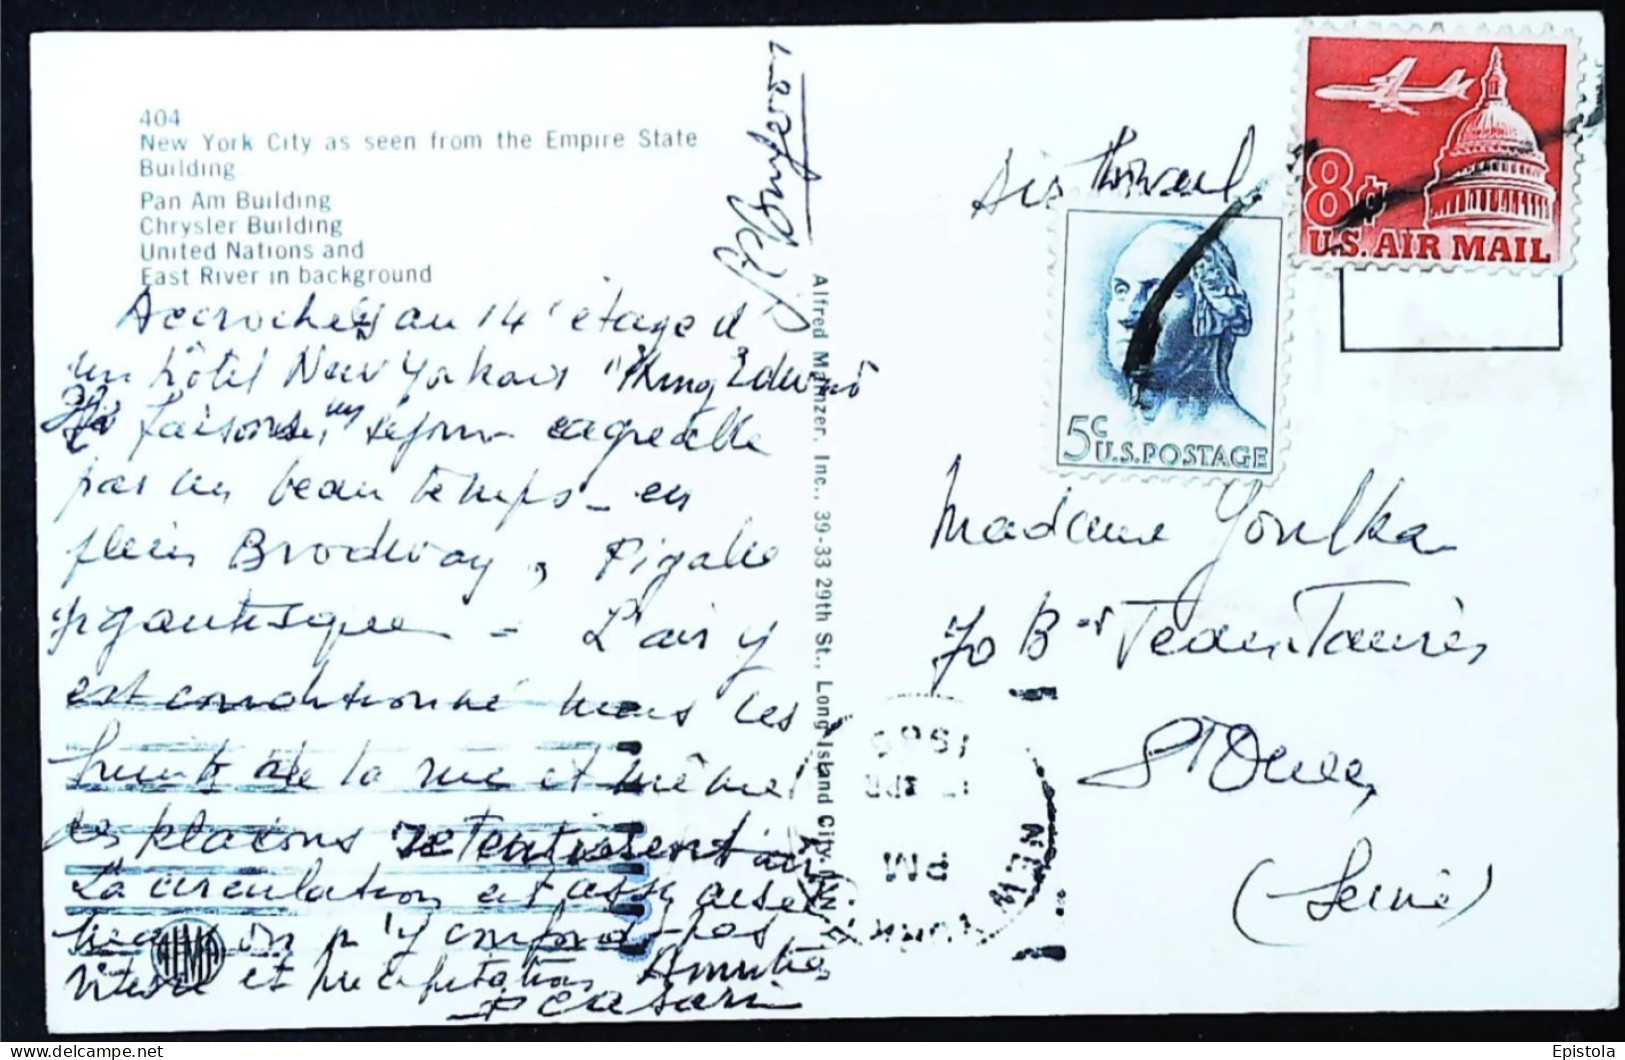 404
New York City as seen from the Empire State
Building
Pan Am Building
Chrysler Building
United Nations and
East River in background
Accrochés au 14e étage d'
un hôtel New Yorkais "King Edward"
faisons un séjour agréable
par un beau temps - en
plein Brodway, Pigalle
gigantesque - L'air y
est conditionné mais les
bruits de la rue et même
des klaxons retentissent
La circulation est assez aisée
on n'y confond pas
vitesse et précipitation Amitiés
Alfred Mainzer, Inc., 39-33 29th St., Long Island City, N.Y.
Air Mail
8¢
U.S. AIR MAIL
5c
U.S. POSTAGE
Madame Youlka
70 Bd Jean Jaurès
St Ouen
(Seine)
NEW YORK
PM
APR
ALMA
delcampe.net
Epistola